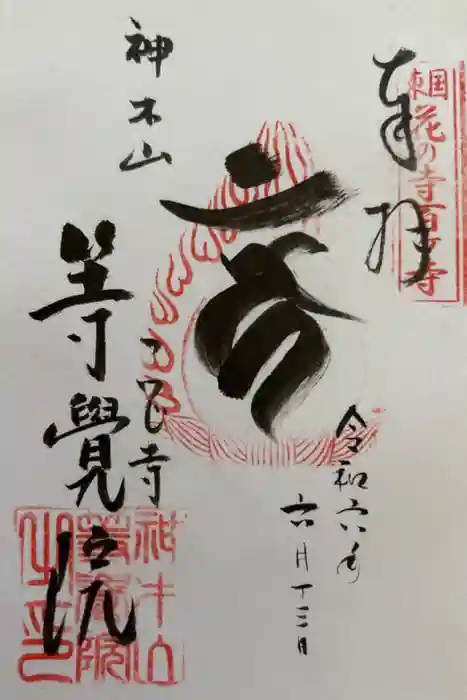 奉拝
東国花の寺百ヶ寺
令和六年
六月十三日
神木山
等覺院
神木山
等覺院
之印